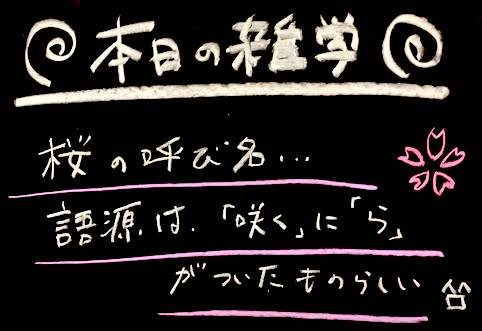 本日の雑学
桜の呼び名…
語源は、「咲く」に「ら」
がついたものらしい